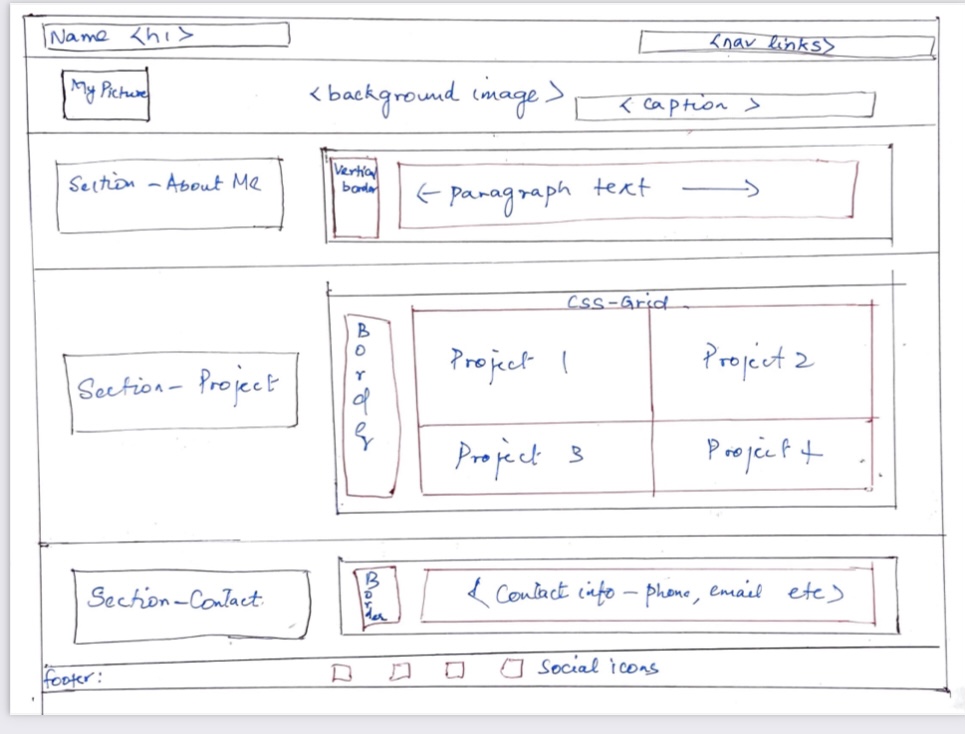 Name <h1>
<nav links>
My Picture
<background image>
< caption >
Section - About Me
Vertical
border
← paragraph text →
CSS-Grid
Border
Project 1
Project 2
Section - Project
Project 3
Project 4
Section - Contact.
Border
< Contact info - phone, email etc>
footer:
Social icons